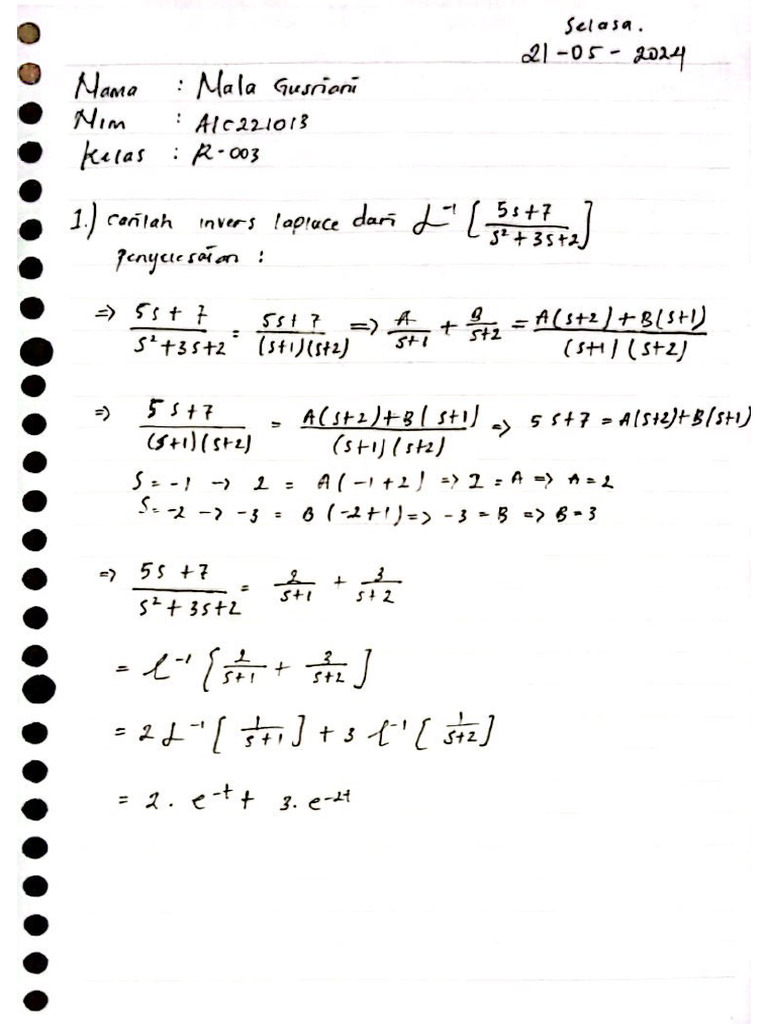 Selasa.
21-05-2024
Nama : Mala Gusriani
Nim : A1C221013
Kelas : R-003
1.) Carilah invers laplace dari L⁻¹ [ (5s+7)/(s²+3s+2) ]
Penyelesaian :
=> (5s+7)/(s²+3s+2) = (5s+7)/((s+1)(s+2)) => A/(s+1) + B/(s+2) = (A(s+2)+B(s+1))/((s+1)(s+2))
=> (5s+7)/((s+1)(s+2)) = (A(s+2)+B(s+1))/((s+1)(s+2)) => 5s+7 = A(s+2)+B(s+1)
S = -1 -> 2 = A(-1+2) => 2 = A => A = 2
S = -2 -> -3 = B(-2+1) => -3 = B => B = 3
=> (5s+7)/(s²+3s+2) = 2/(s+1) + 3/(s+2)
= L⁻¹ [ 2/(s+1) + 3/(s+2) ]
= 2 L⁻¹ [ 1/(s+1) ] + 3 L⁻¹ [ 1/(s+2) ]
= 2 . e^-t + 3. e^-2t